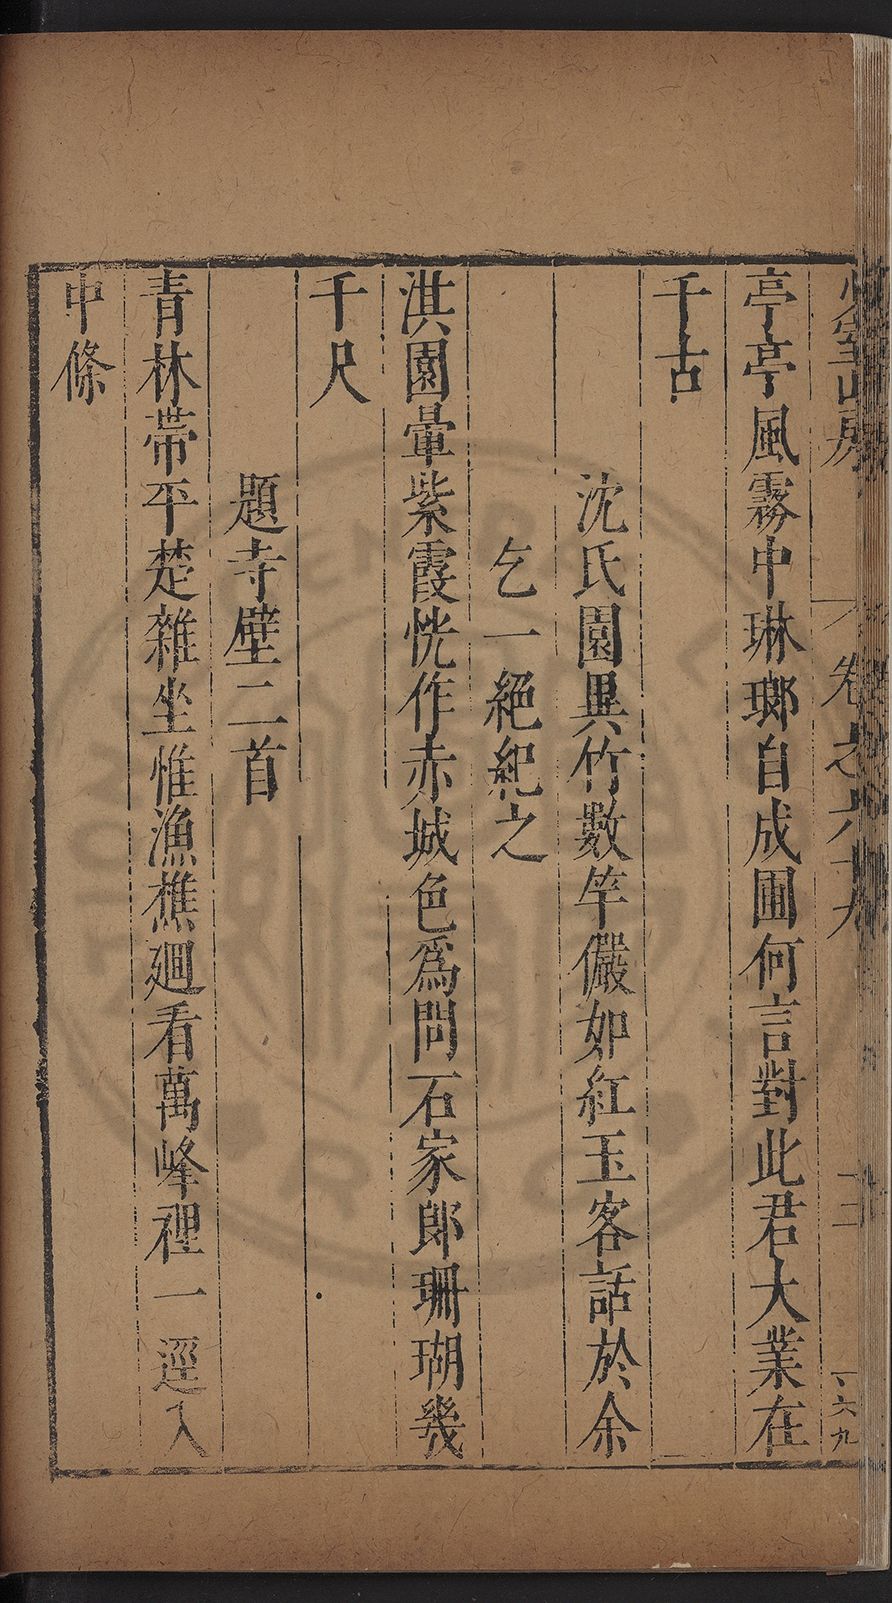 少室山房
卷之六十九
三
六九
亭亭風霧中琳瑯自成圃何言對此君大業在
千古
沈氏園異竹數竿儼如紅玉客話於余
乞一絕紀之
淇園暈紫霞恍作赤城色爲問石家郞珊瑚幾
千尺
題寺壁二首
青林帶平楚雜坐惟漁樵廻看萬峰裡一逕入
中條